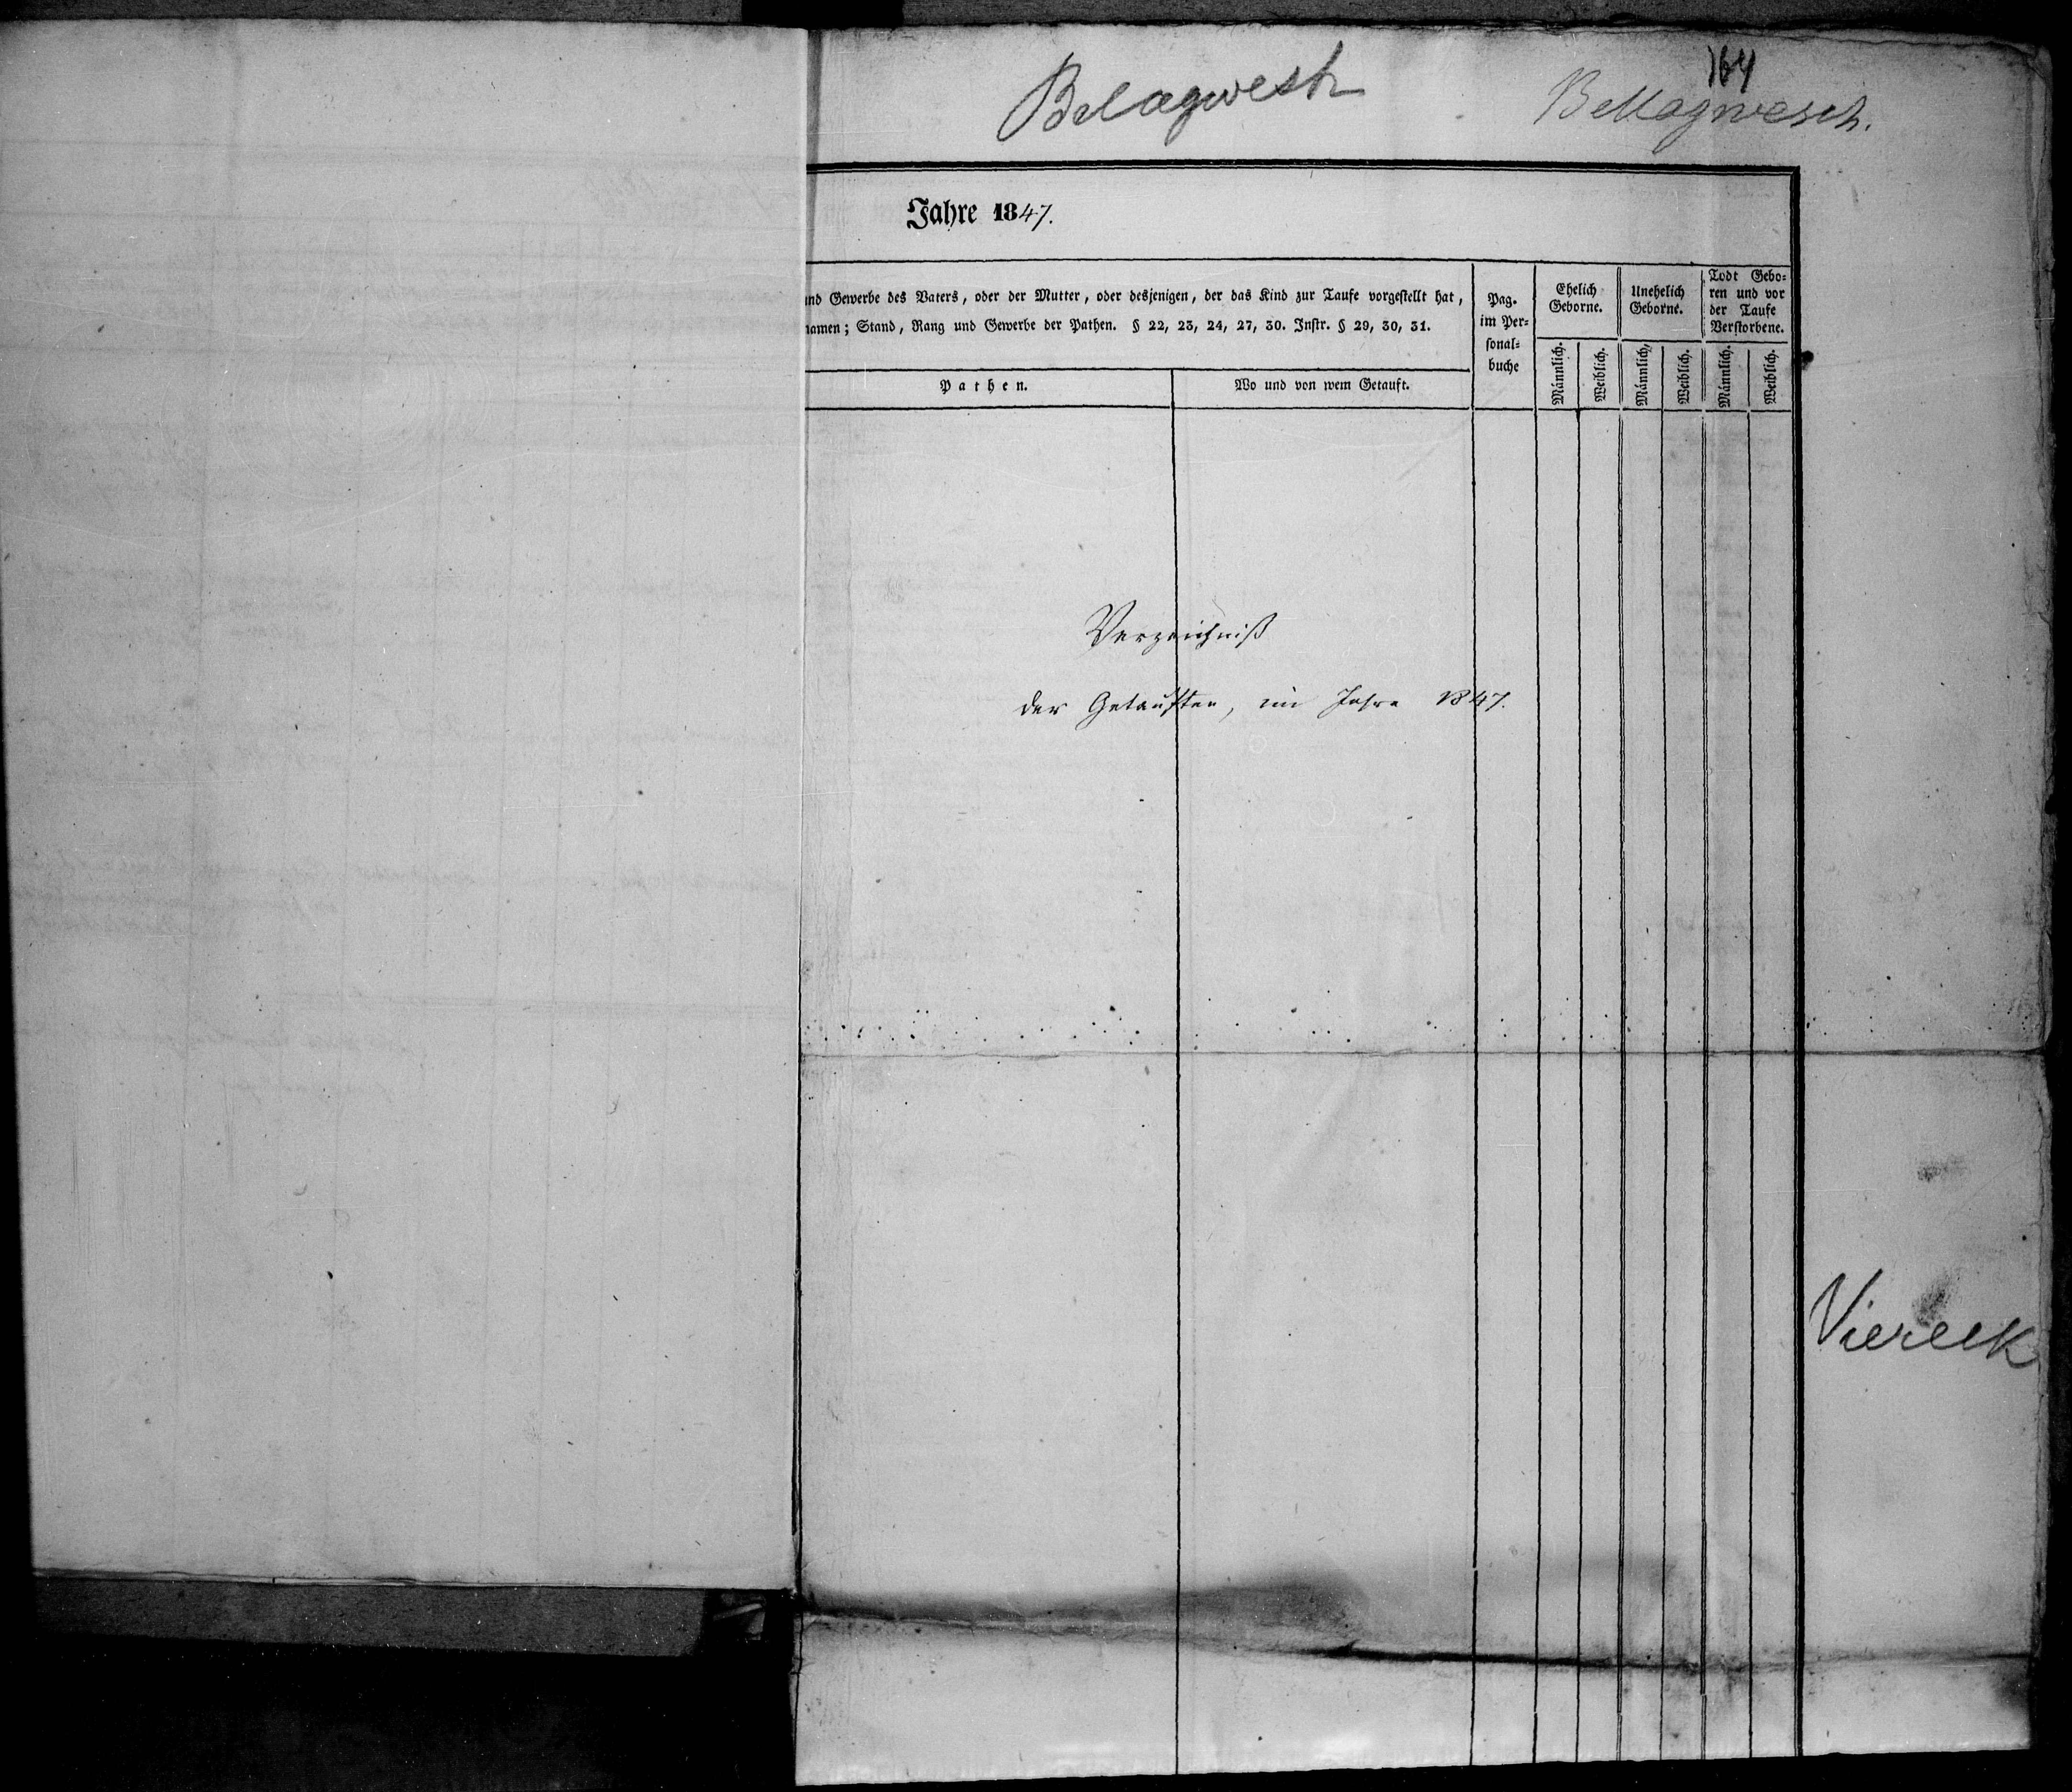 164
Belagwesh
Bellagwesch.
Jahre 1847.
nd Gewerbe des Vaters, oder der Mutter, oder desjenigen, der das Kind zur Taufe vorgestellt hat,
namen; Stand, Rang und Gewerbe der Pathen. § 22, 23, 24, 27, 30. Instr. § 29, 30, 31.
Pathen.
Wo und von wem Getauft.
Pag.
im Per-
sonal-
buche
Ehelich
Geborne.
Unehelich
Geborne.
Todt Gebo-
ren und vor
der Taufe
Verstorbene.
Männlich.
Weiblich.
Männlich.
Weiblich.
Männlich.
Weiblich.
Verzeichniß
der Getauften, im Jahre 1847.
Viereck